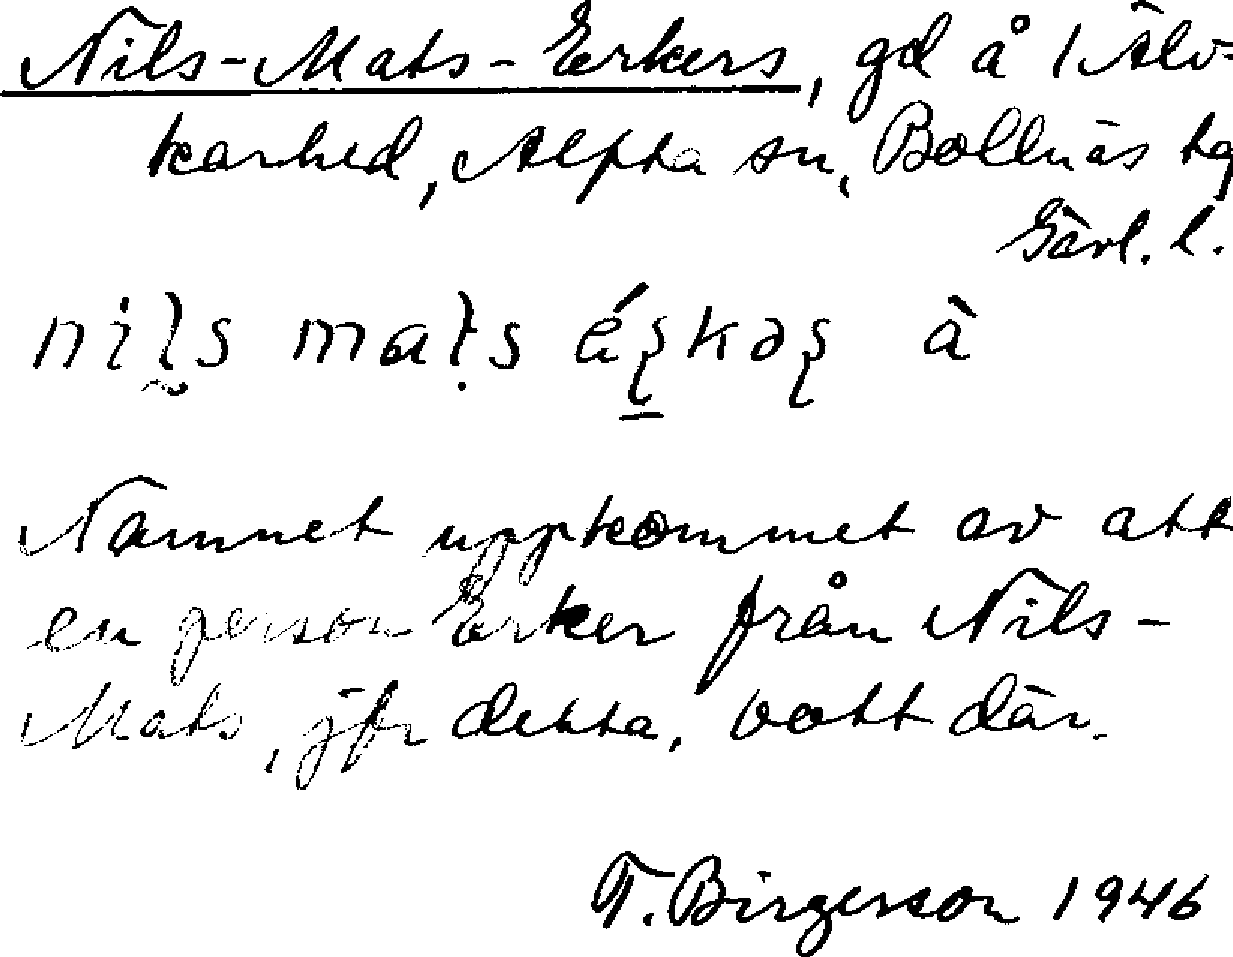 Nils-Mats-Erkers, gd å 1 Älv-
karhed, Alfta sn, Bollnäs tg
Gävl. l.
Namnet uppkommet av att
en person Erker från Nils-
Mats, jfr detta, bott där.
T. Birgerson 1946